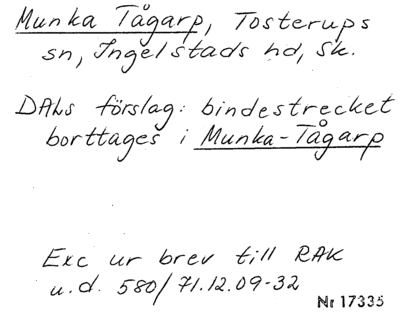 Munka Tågarp, Tosterups
sn, Ingelstads hd, Sk.
DALs förslag: bindestrecket
borttages i Munka-Tågarp
Exc ur brev till RAK
u.d. 580/71.12.09-32
Nr 17335